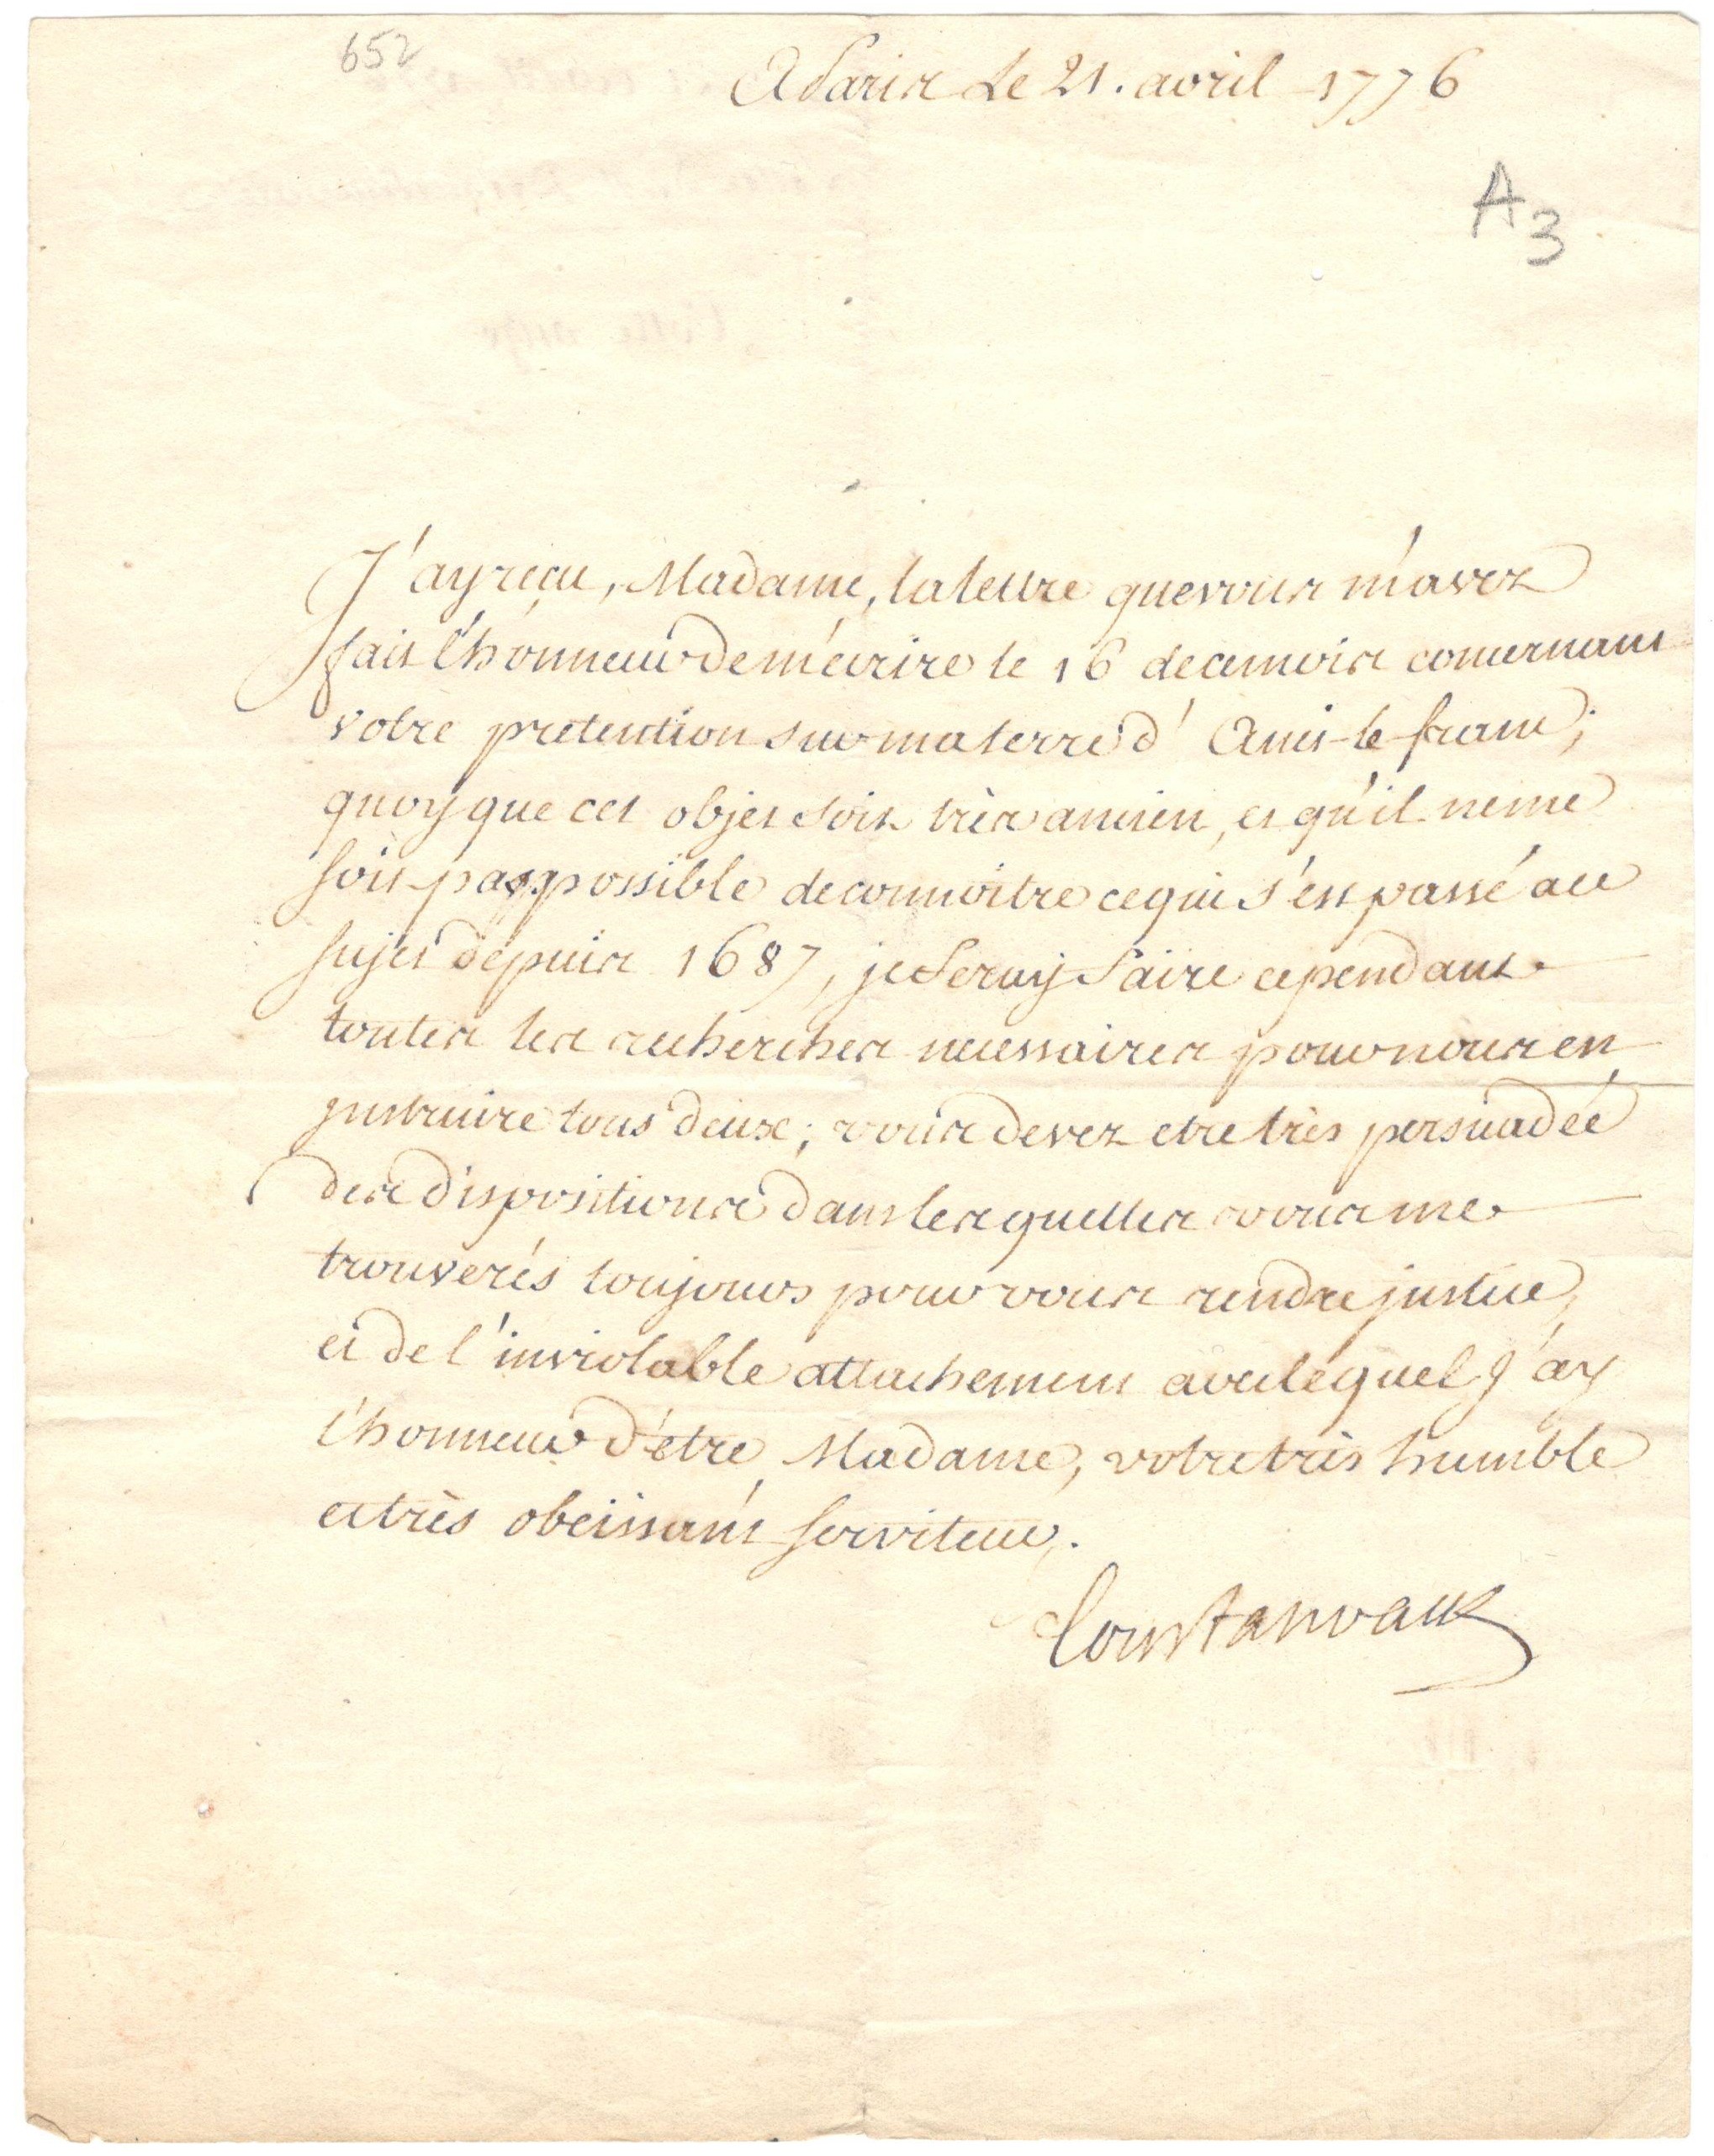 652
A Paris Le 21. avril 1776
A3
J'ay reçu, Madame, la lettre que vous m'avez
fait l'honneur de m'ecrire le 16 de ce mois concernant
votre pretention sur ma terre d'Anci-le-franc;
quoy que cet objet soit très ancien, et qu'il ne me
soit pas possible de connoitre ce qui s'est passé au
sujet depuis 1687, je feray faire cependant
toutes les recherches necessaires pour nous en
instruire tous deux; vous devez etre très persuadée
des dispositions dans lesquelles vous me
trouverés toujours pour vous rendre justice,
et de l'inviolable attachement avec lequel j'ay
l'honneur d'être, Madame, votre très humble
et très obeissant serviteur.
Courtanvaux